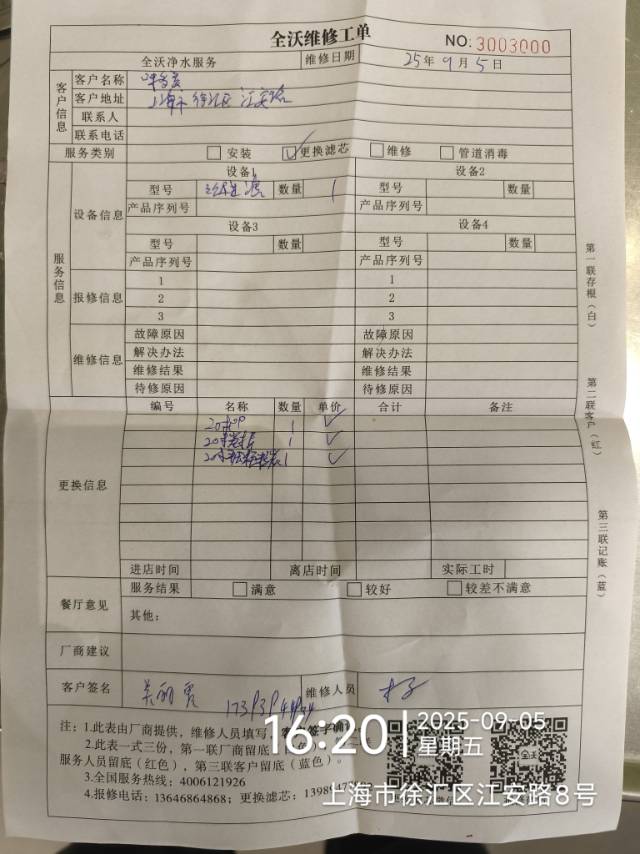 全沃维修工单
NO: 3003000
全沃净水服务 维修日期 25年 9月 5日
客户信息
客户名称
客户地址 上海市 徐汇区 江安路
联系人
联系电话
服务类别 安装 更换滤芯 维修 管道消毒
服务信息
设备信息
设备1 设备2
型号 数量 1 型号 数量
产品序列号 产品序列号
设备3 设备4
型号 数量 型号 数量
产品序列号 产品序列号
报修信息
1 1
2 2
3 3
维修信息
故障原因 故障原因
解决办法 解决办法
维修结果 维修结果
待修原因 待修原因
更换信息
编号 名称 数量 单价 合计 备注
20寸PP 1
20寸 1
20寸 1
进店时间 离店时间 实际工时
餐厅意见
服务结果 满意 较好 较差不满意
其他:
厂商建议
客户签名 维修人员
注: 1.此表由厂商提供，维修人员填写，客户签字确
2.此表一式三份，第一联厂商留底
服务人员留底（红色），第三联客户留底（蓝色）。
3.全国服务热线: 4006121926
4.报修电话: 13646864868; 更换滤芯:
第一联存根（白）
第二联客户（红）
第三联记账（蓝）
全沃
16:20
2025-09-05
星期五
上海市徐汇区江安路8号